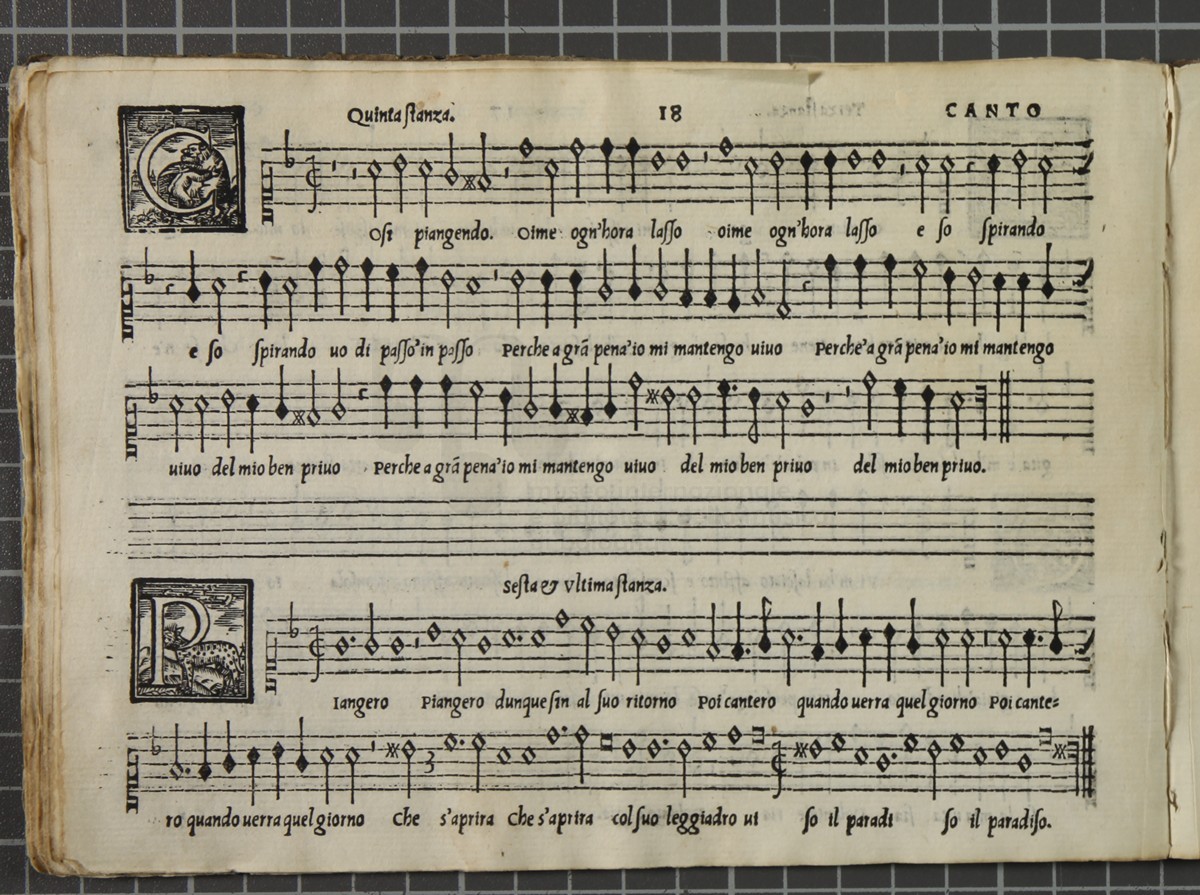 Quinta stanza. 18 CANTO
COsi piangendo. Oime ogn'hora lasso oime ogn'hora lasso e so spirando
e so spirando uo di passo'in passo Perche a grã pena'io mi mantengo uiuo Perche'a grã pena'io mi mantengo
uiuo del mio ben priuo Perche a grã pena'io mi mantengo uiuo del mio ben priuo del mio ben priuo.
Sesta & Vltima stanza.
PIangero Piangero dunque sin al suo ritorno Poi cantero quando uerra quel giorno Poi cante=
3
ro quando uerra quel giorno Che s'aprira Che s'aprira col suo leggiadro ui so il paradi so il paradiso.